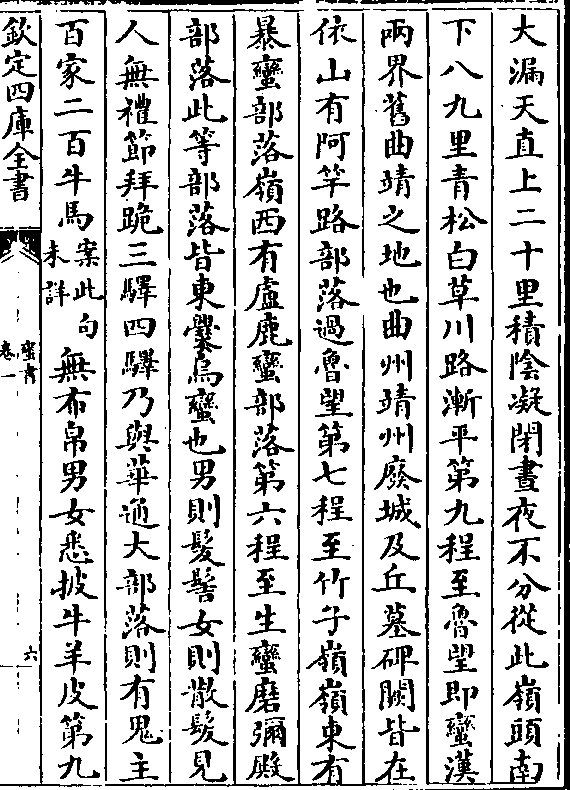 大漏天直上二十里積陰凝閉晝夜不分從此嶺頭南
下八九里青松白草川路漸平第九程至魯望即蠻漢
兩界舊曲靖之地也曲州靖州廢城及丘墓碑闕皆在
依山有阿竿路部落過魯望第七程至竹子嶺嶺東有
暴蠻部落嶺西有盧鹿蠻部落第六程至生蠻磨彌殿
部落此等部落皆東爨烏蠻也男則髮髻女則散髮見
人無禮節拜跪三驛四驛乃與華通大部落則有鬼主
百家二百牛馬案此句未詳無布帛男女悉披牛羊皮第九
欽定四庫全書
蠻書
卷一
六